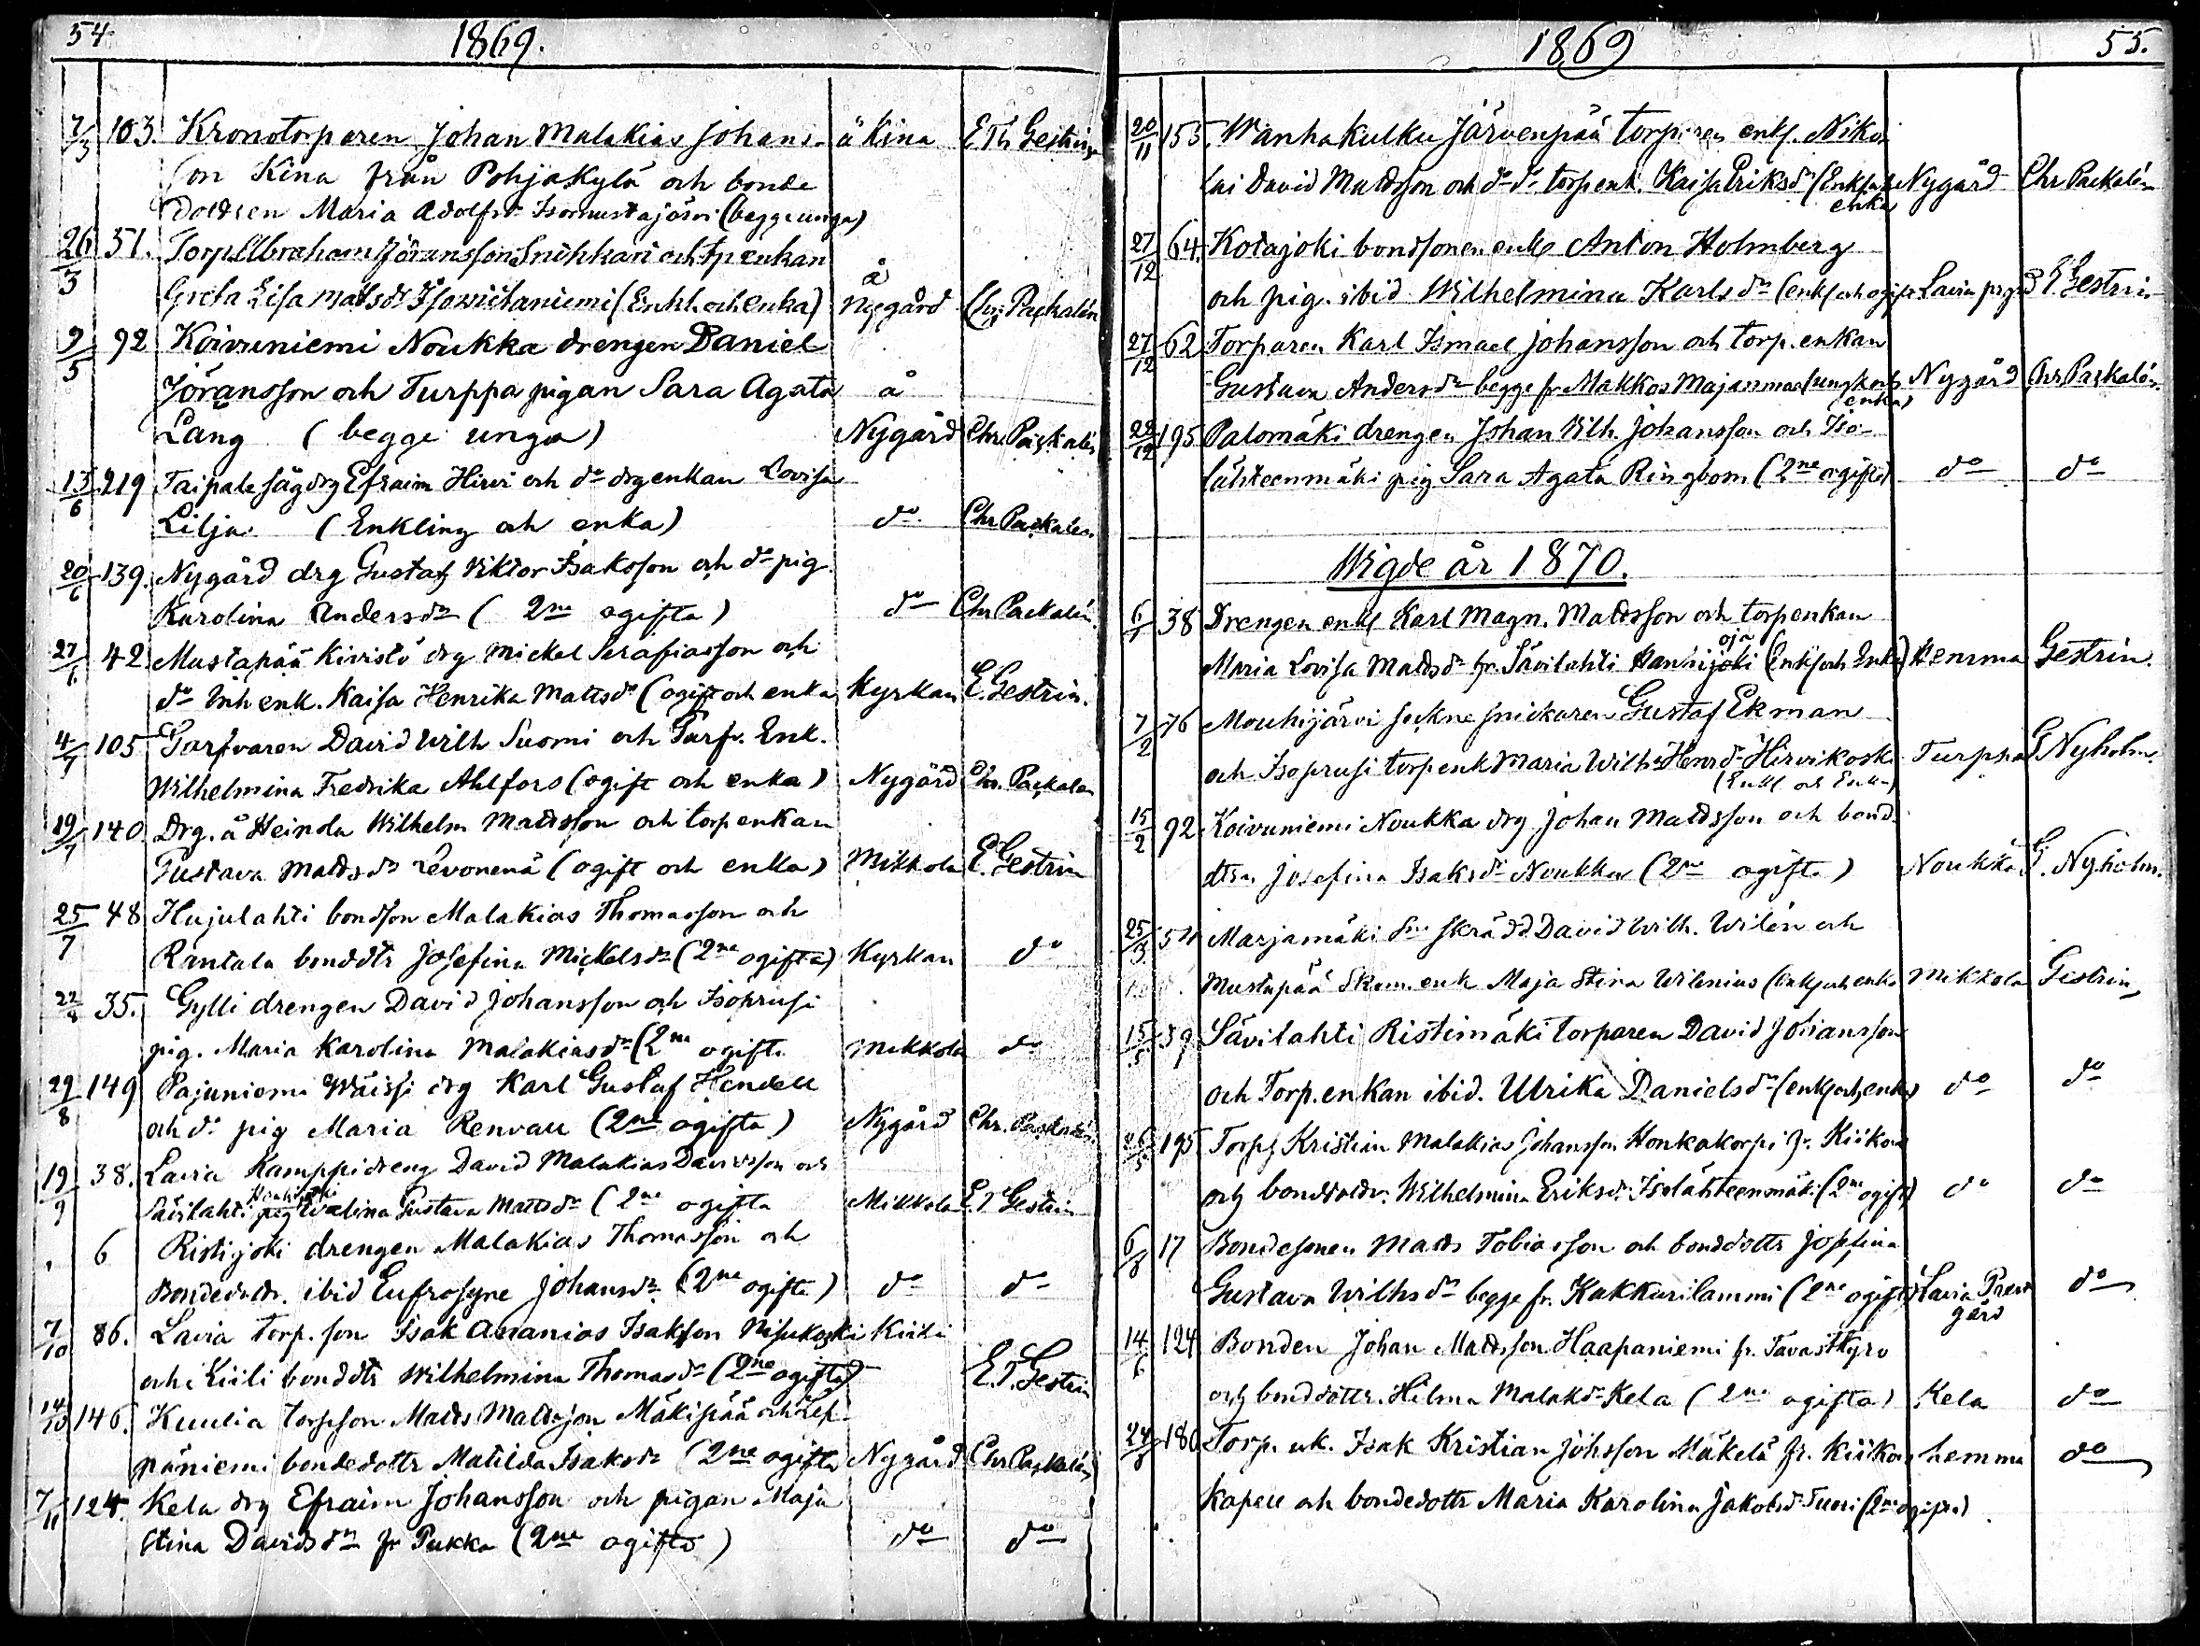 54 1869.
7/3 103. Kronotorparen Johan Malakias Johans- å Kina E Th Gestrin
son Kina från Pohjakylä och bonde
dottren Maria Adolfsdr (begge unga)
26/3 51. Torp Abraham Jöransson Snikkari och tp enkan å
Greta Lisa Matsdr (Enkl. och enka) Nygård Chr Paskalén
9/5 92 Koivuniemi Noukka drengen Daniel
Jöransson och Turppa pigan Sara Agata å
Lang (begge unga) Nygård Chr. Paskalén
13/6 219 Taipale såg drg Efraim Hirvi och do drg enkan Lovisa
Lilja (Enkling och enka) do Chr Paskalén
20/6 139. Nygård drg Gustaf Viktor Isaksson och do pig.
Karolina Andersdr (2ne ogifta) do Chr Paskalén
27/6 42 Mustapää Kivistö drg Mickel Serafiasson och
do inh enk. Kaisa Henrika Mattsdr (ogift och enka Kyrkan E. Gestrin.
4/7 105 Garfvaren David Wilh Suomi och Garfv. Enk.
Wilhelmina Fredrika Ahlfors (ogift och enka) Nygård Chr. Paskalén
19/7 140. Drg. å Heinola Wilhelm Mattsson och torp enkan
Gustava Mattsdr Levonenä (ogift och enka) Mikkola E. Gestrin
25/7 48 Hujulahti bondson Malakias Thomasson och
Rantala bonddtr Josefina Mickelsdr (2ne ogifta) Kyrkan do
22/8 35. Gylli drengen David Johansson och Isokrusi
pig. Maria Karolina Malakiasdr (2ne ogifta Mikkola do
29/8 149 Pajuniemi Wäissi drg Karl Gustaf Hendell
och do pig Maria Renvall (2ne ogifta) Nygård Chr. Paskalén
19/9 38. Lavia Kamppi dreng David Malakias Davidsson och
Sävilahti pig Gustava Mattsdr (2ne ogifta Mikkola E. T Gestrin
6 Ristijoki drengen Malakias Thomasson och
Bondedotr. ibid Eufrosyne Johansdr (2ne ogifta) do do
7/10 86. Lavia torp. son Isak Ananias Isaksson Nisukoski Kiili
och Kiili bonddtr Wilhelmina Thomasdr (2ne ogifta) E. T. Gestrin
14/10 146. Kuulia torpson Matts Mattsson Mäkipää och Lep-
päniemi bondedottr Matilda Isaksdr (2ne ogifta Nygård Chr Paskalén
7/11 124. Kela drg Efraim Johansson och pigan Maja
Stina Davidsdr fr Pukka (2ne ogifta) do do
1869 55.
20/11 155. Wanhakulku Järvenpää torparen enkl. Niko-
lai David Mattsson och do do torpenk. Kaisa Eriksdr (Enkl och Nygård Chr Paskalén
enka
27/12 64. Kotajoki bondsonen enkl Anton Holmberg
och pig. ibid Wilhelmina Karlsdr (enkl och ogift Lavia prgrd E. Gestrin
27/12 62 Torparen Karl Ismael Johansson och torp. enkan
Gustava Andersdr begge fr Makkos Majanmaa (ungk och Nygård Chr Paskalén
enka)
28/12 195 Palomäki drengen Johan Wilh. Johansson och Iso-
lähteenmäki pig Sara Agata Ringbom (2ne ogifta) do do
Wigde år 1870.
6/1 38 Drengen enkl Karl Magn. Mattsson och torpenkan
oja
Maria Lovisa Mattsdr fr. Sävilahti Hanhijoki (Enkl och Enka) Hemma Gestrin.
7/2 76 Mouhijärvi sockne snickaren Gustaf Ekman
och Isoprusi torpenk Maria Wilh. Henrdr Hirvikoski Turppa G Nyholm.
(Enkl och Enka)
15/2 92 Koivuniemi Noukka drg Johan Mattsson och bond-
dtrn Josefina Isaksdr Noukka (2ne ogifta) Noukka G. Nyholm.
25/3 54 Marjamäki Sne skrädd David Wilh. Wilén och
Mustapää Skom. enk Maja Stina Wilenius (enkl och enka Mikkola Gestrin
15/5 39 Sävilahti Ristimäki torparen David Johansson
och Torp.enkan ibid. Ulrika Danielsdr (enkl och enka) do do
26/5 195 Torps Kristian Malakias Johansson Honkakorpi fr. Kiikois
och bonddotr. Wilhelmina Eriksdr Isolähteenmäki (2ne ogift) do do
6/6 17 Bondesonen Matts Tobiasson och bonddottr Josefina
Gustava Wilhsdr begge fr. Kakkurilammi (2ne ogifta) Lavia Prest do
gård
14/6 124 Bonden Johan Mattsson Haapaniemi fr. Tavastkyro
och bonddottr. Hilma Malaksdr Kela (2ne ogifta) Kela do
24/6 180 Torp. uk. Isak Kristian Johsson Mäkelä fr. Kiikois hemma do
Kapell och bondedottr Maria Karolina Jakobsdr Tuori (2ne ogifta)